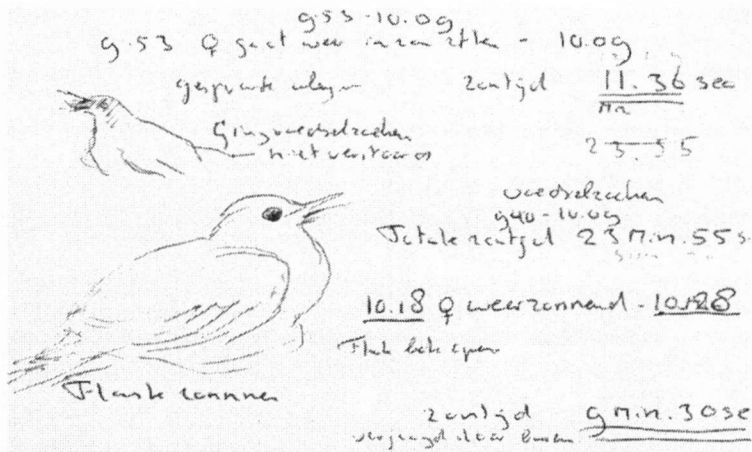 9.53-10.09
9.53 ♀ gaat weer in zon zitten - 10.09
zontijd 11.36 sec
Min
Ging voedselzoeken
niet verstoord
23.55
voedselzoeken
9.40-10.09
Totale zontijd 23 Min. 55 s
10.18 ♀ weer zonnend - 10.28
open
zonnen
zontijd 9 Min. 30 se
verjaagd door